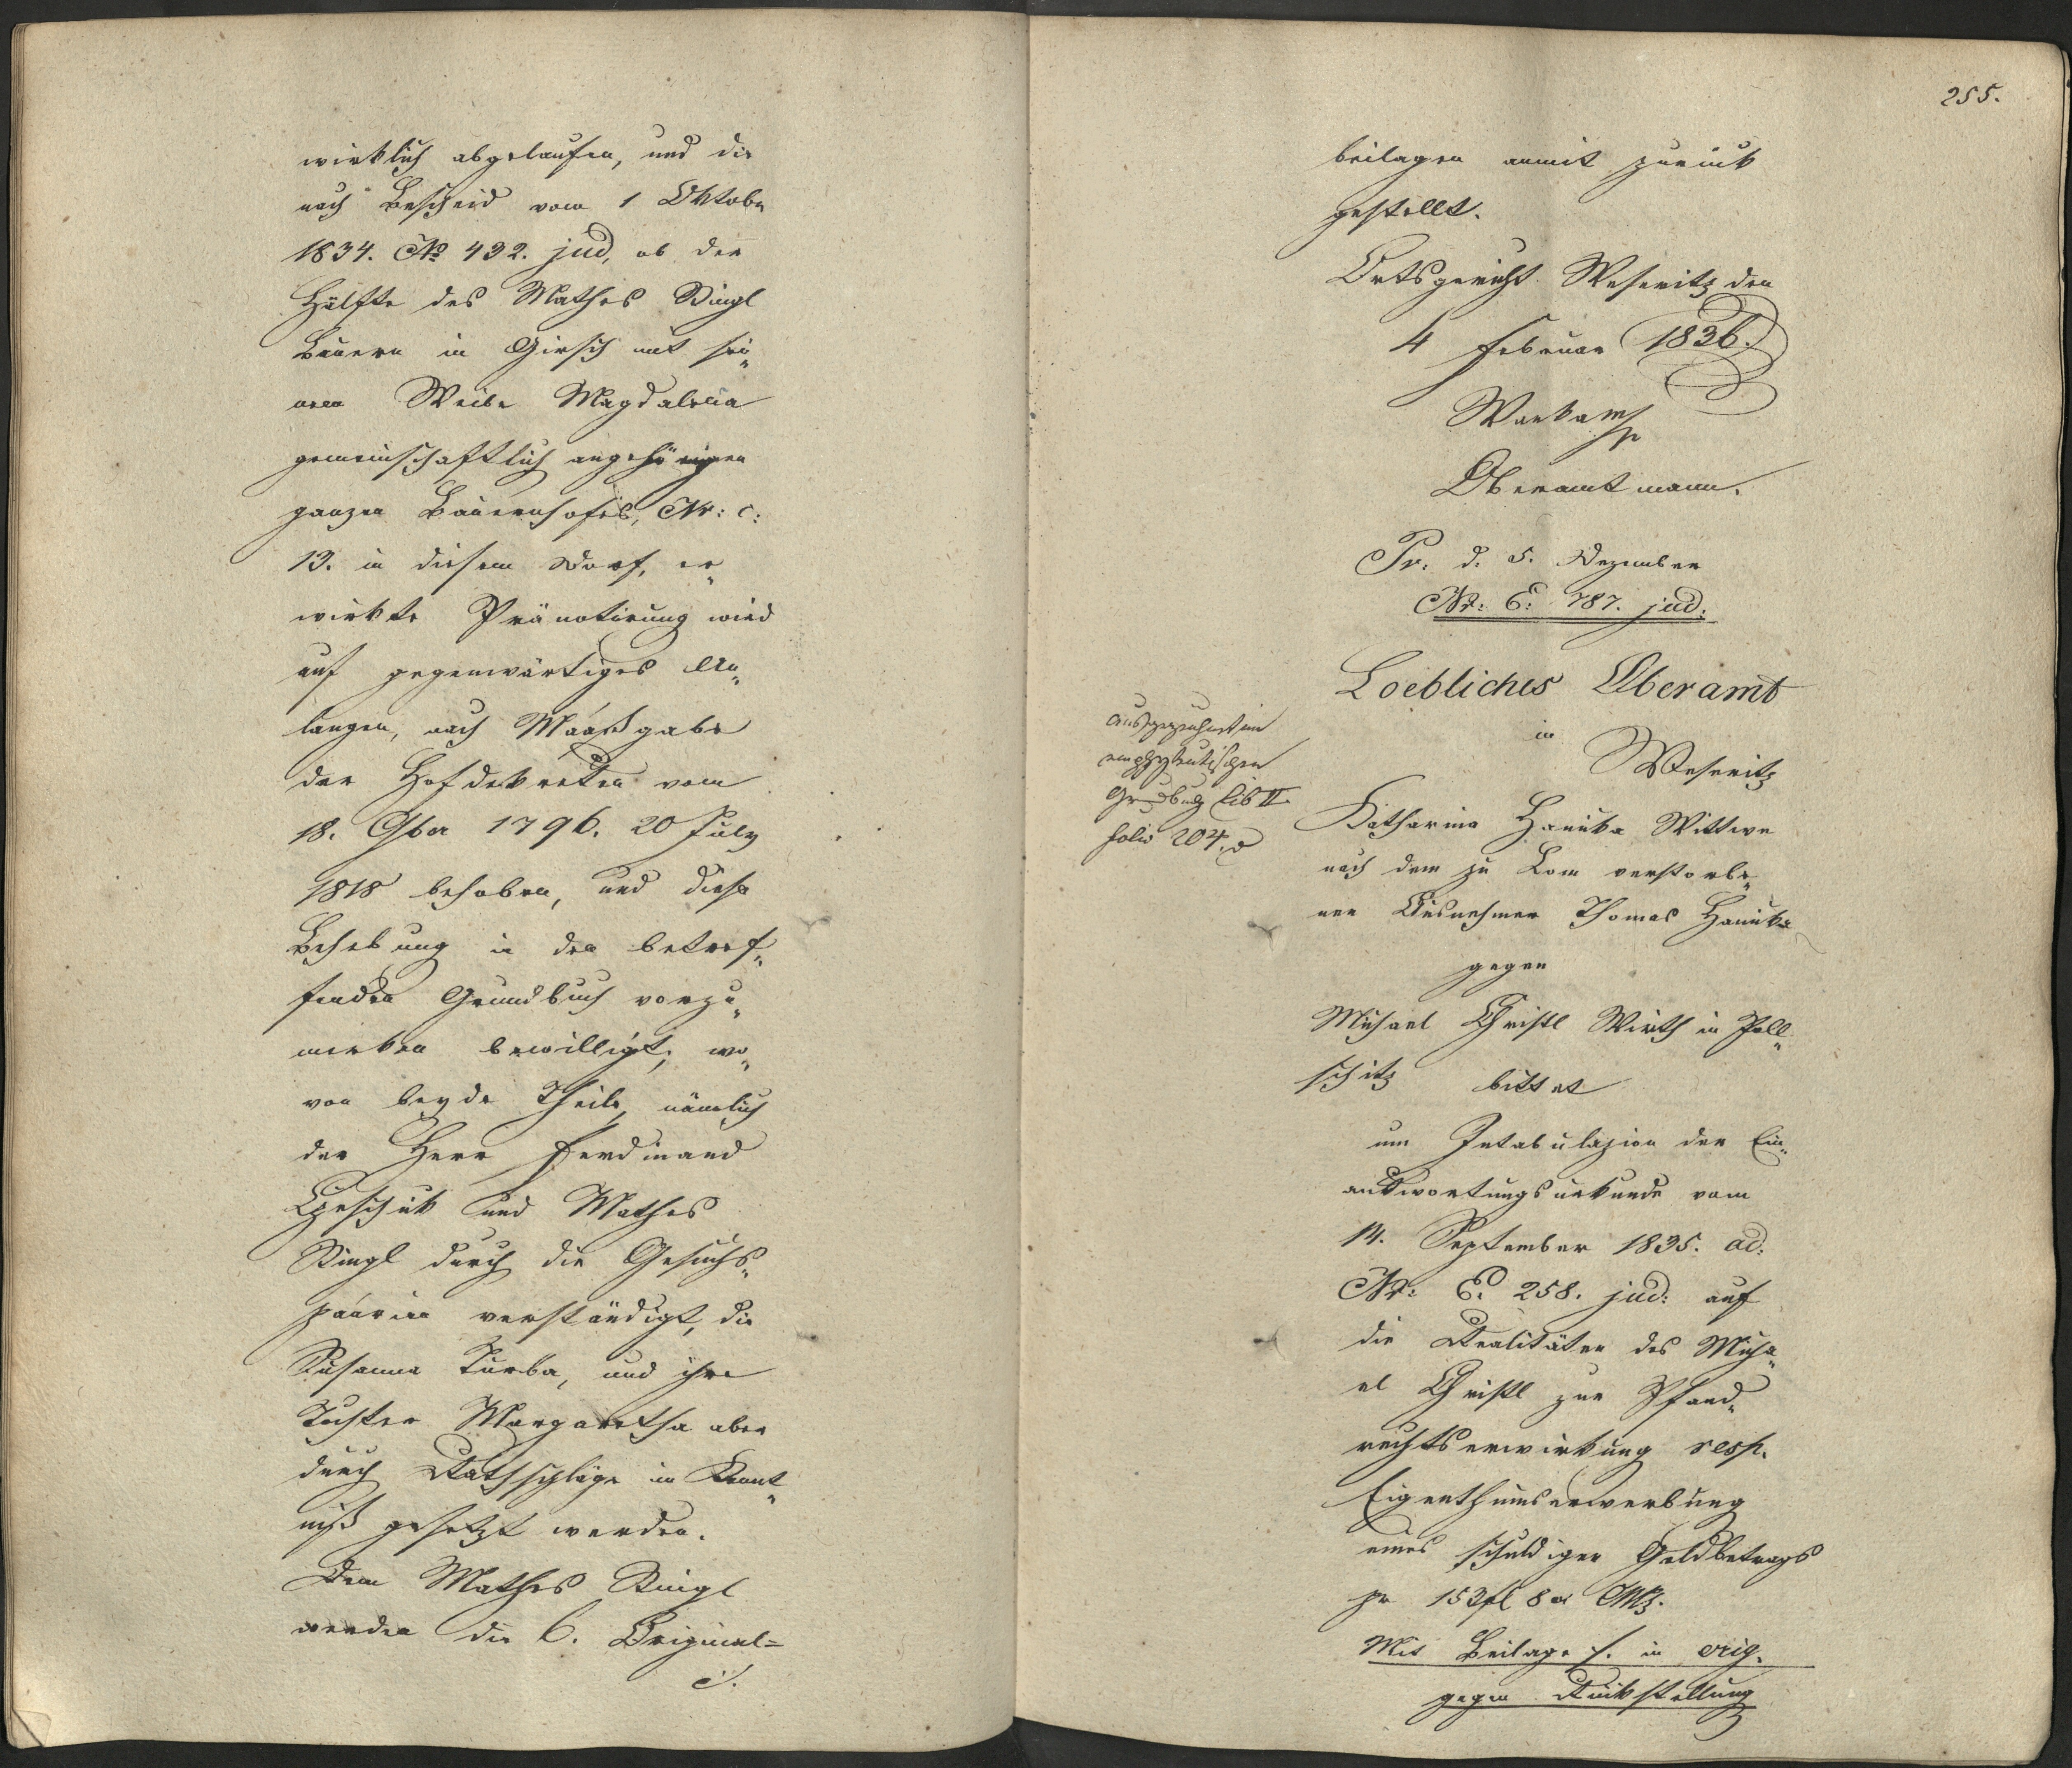 wirklich abgelaufen, und die
nach Bescheid vom 1 Oktober
1834. No 432. jud. ob der
Hälfte des Mathes Stingl
Bauern in Girsch mit sei„
nem Weibe Magdalena
gemeinschaftlich angehörigen
ganzen Bauernhofes, Nr: c:
13. in diesem Dorf, er„
wirkte Pränotirung wird
auf gegenwärtiges An„
langen, nach Maaßgabe
der Hofdekreten vom
18. 9ber 1796. 20 July
1818 behoben, und diese
Behebung in den betref„
fenden Grundbuch vorzu„
merken bewilligt, wo„
von beyde Theile, nämlich
der Herr Ferdinand
und Mathes
Stingl durch die Gesuchs„
paarien verständigt, die
Susanna Turba, und ihre
Tochter Margaretha aber
durch Rathschläge in Kennt„
niß gesetzt werden.
Dem Mathes Stingl
werden die 6. Original=
255.
beilagen anmit zurück
gestellt.
Ortsgericht Weseritz den
4 Februar 1836.
Oberamtmann.
Pr. d. 5. Dezember
Nr: E: 787. jud:
Loebliches Oberamt
in
Weseritz
ausgezeichnet im
emphyteutischen
Grundbuch lib II
folio 204.
Katharina Hanika Wittwe
nach dem zu Lom verstorbe„
nen Ausnehmer Thomas Hanika
gegen
Michael Christl Wirth in Poll„
schitz bittet
um Intabulazion der Ein„
antwortungsurkunde vom
14. September 1835. ad:
Nr: E. 258. jud: auf
die Realitäten des Micha„
el Christl zur Pfand„
rechtserwirkung resp.
Eigenthumserwerbung
eines schuldigen Geldbetrags
pr 153 fl 8 x CMz.
Mit Beilage /. in orig.
gegen Rückstellung